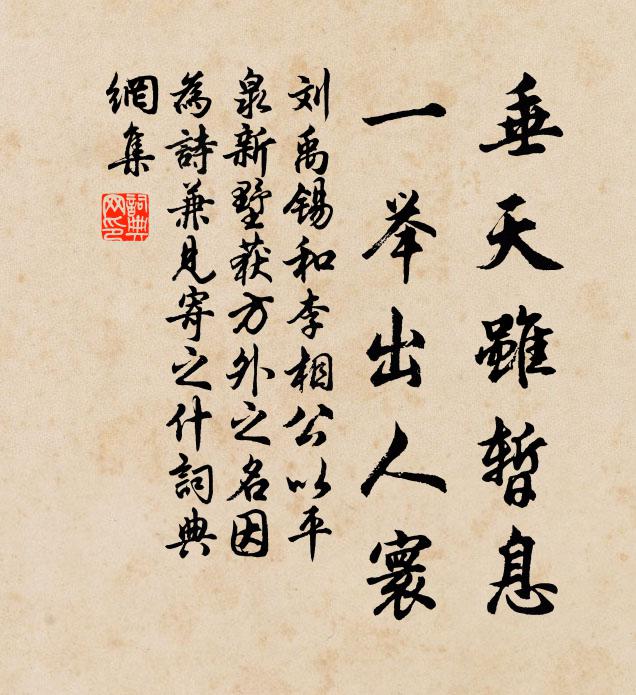 垂天雖暫息
一举出人寰
刘禹锡和李相公以平
泉新墅获方外之名因
為詩兼見寄之什詞典
網集
詞典
网印